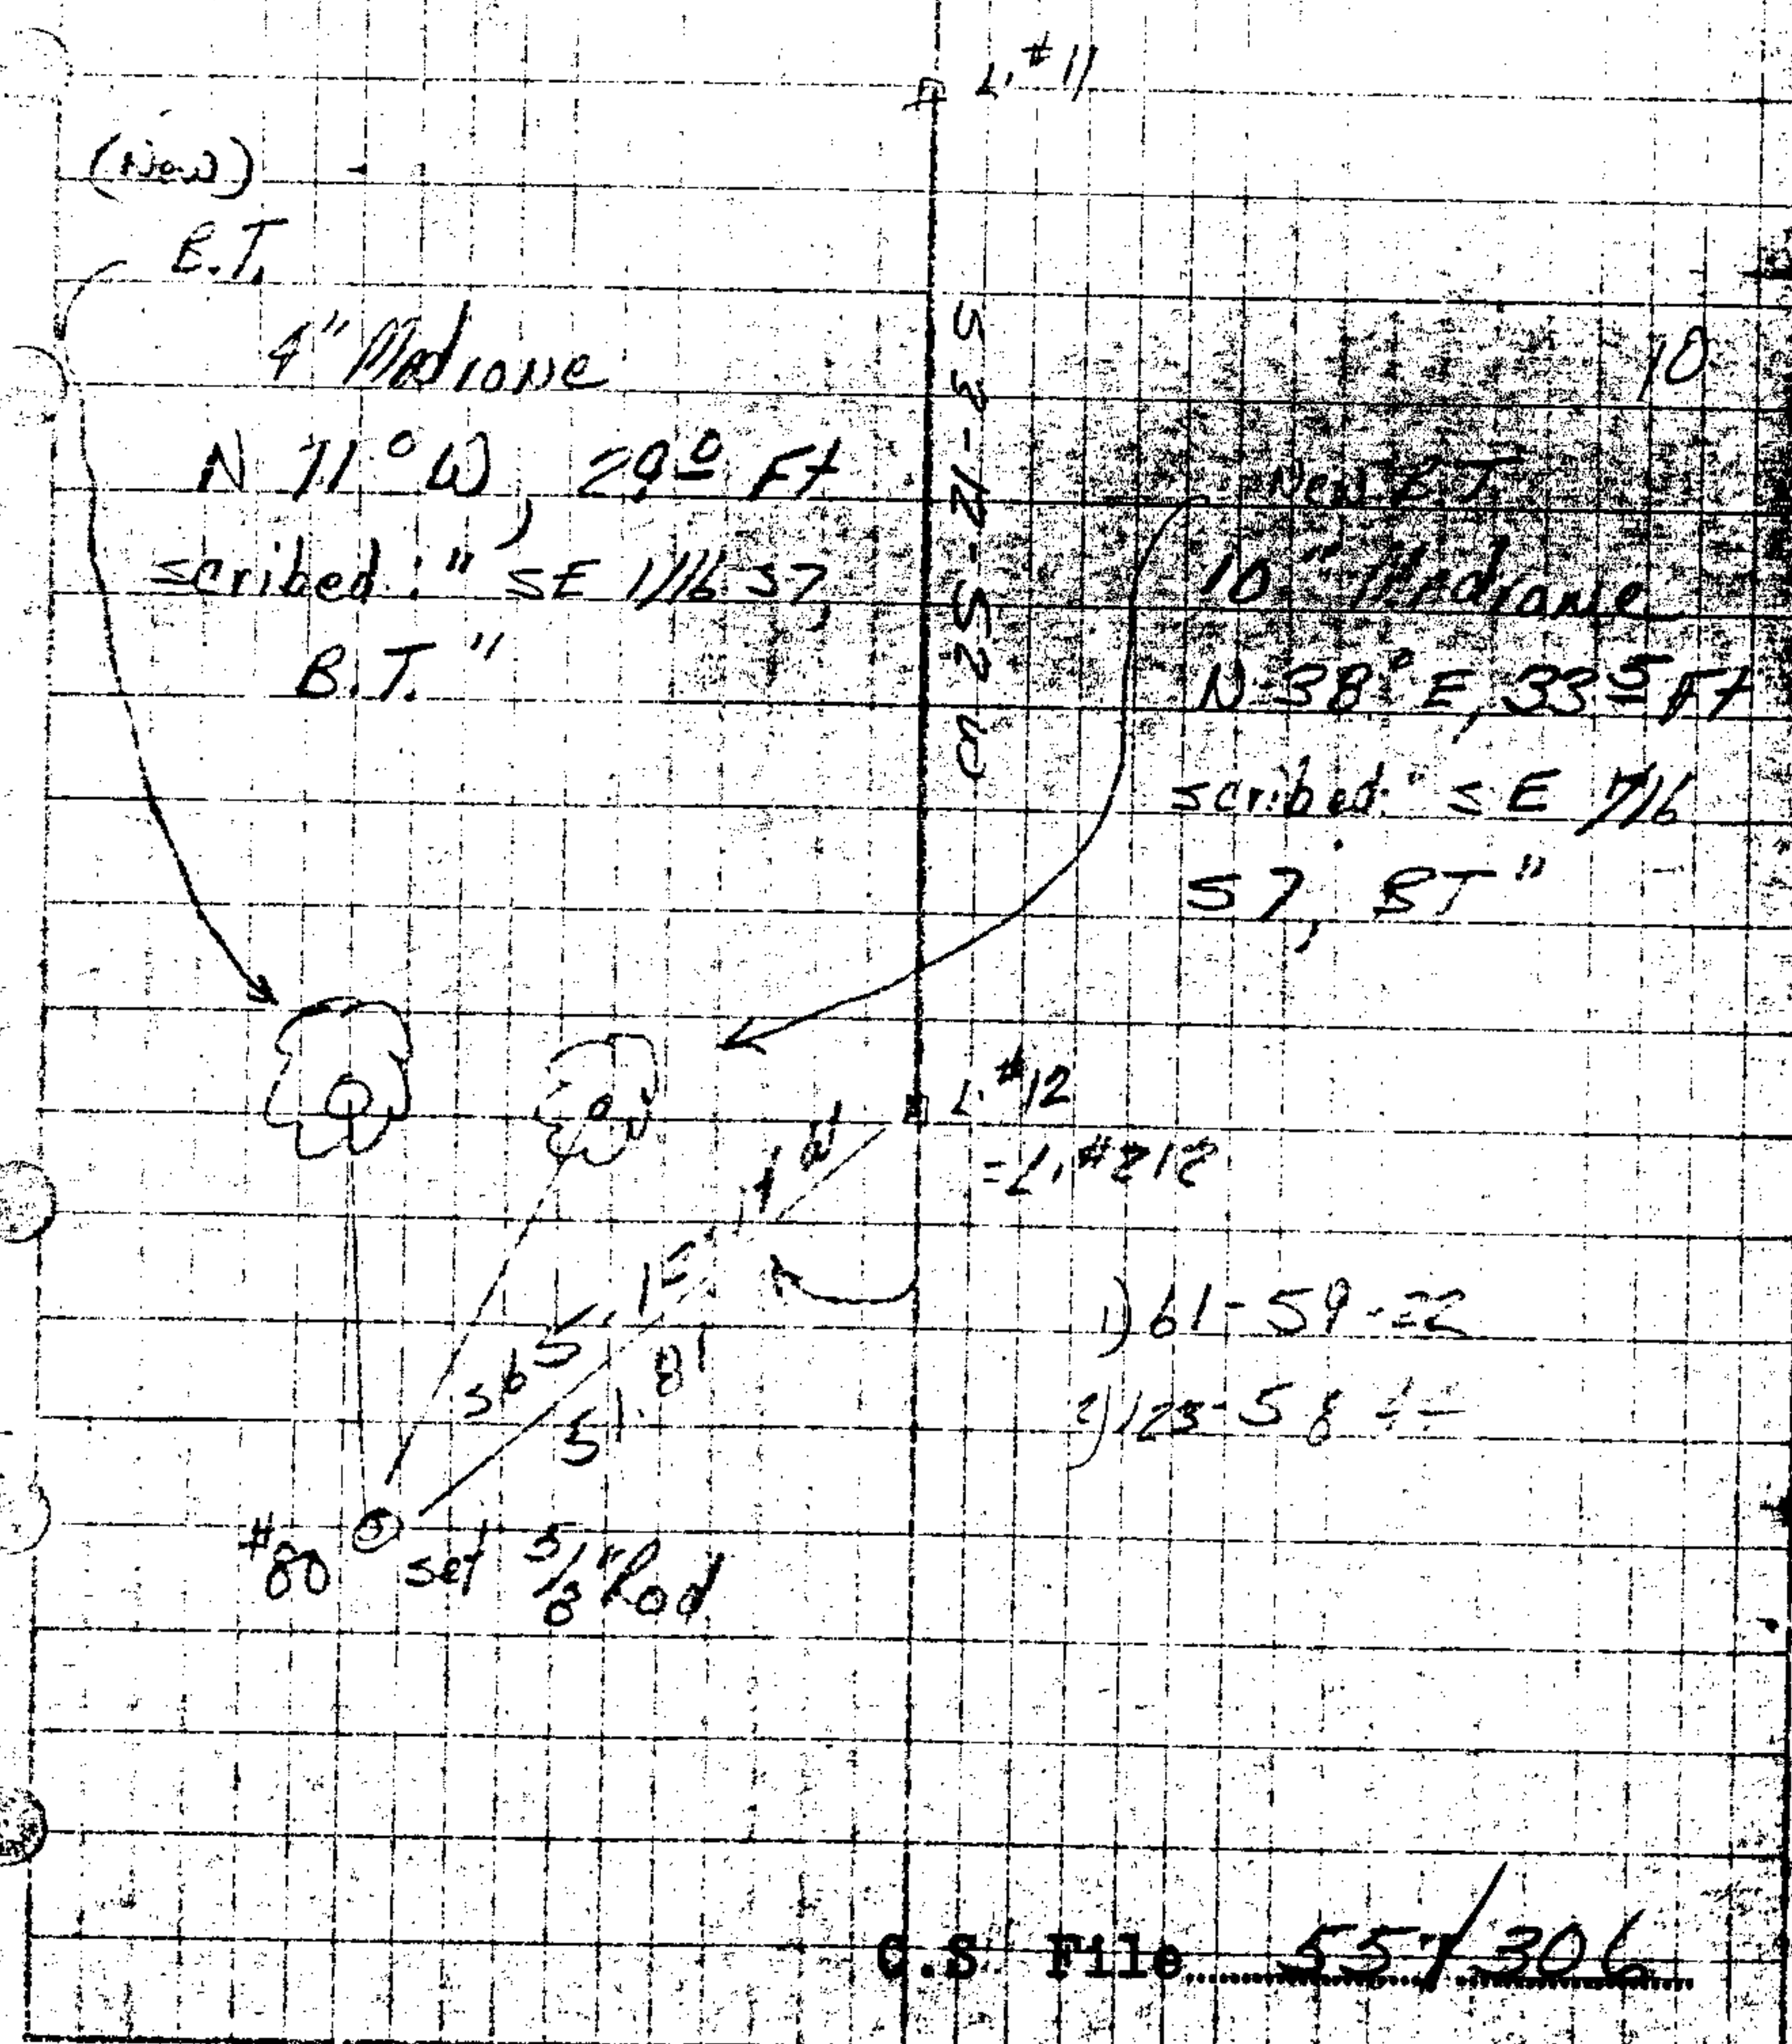 L.#11
(New)
B.T.
4" Madrone
N 71° W, 29.0 Ft
scribed: " SE 1/16 S7,
B.T. "
10
New B.T.
10" Madrone
N 38° E, 33.5 Ft
scribed: " SE 1/16
S7, BT "
L.#12
=L.#212
1) 61-59-22
2) 123-58-44
#80
set 5/8" Rod
C.S. File 557/306